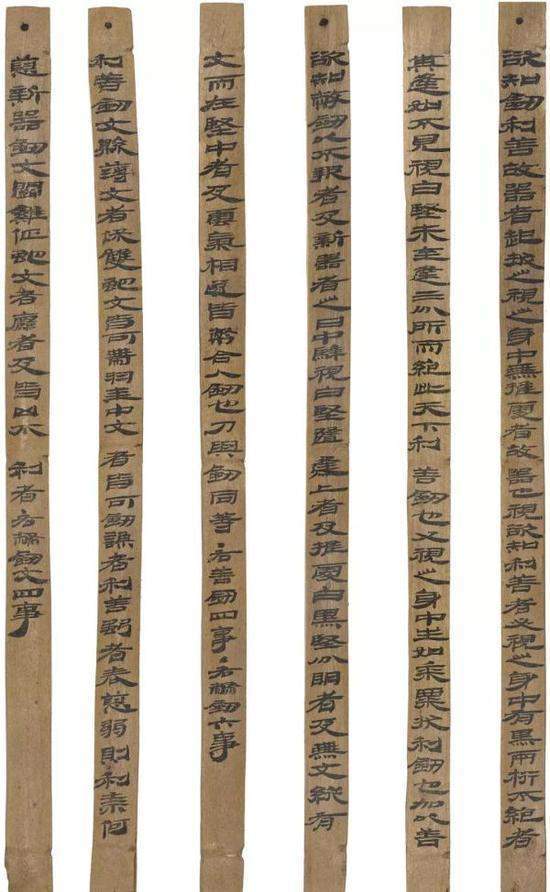 欲知劒利善故器者起拔之視之身中無推處者故器也視欲知利善者必視之身中有黑兩桁不絕者
其逢如不見視白堅未至逢三分所而絕此天下利善劒也又視之身中生如黍粟狀利劒也加以善
欲知幣劒以不報者及新器者之日中騂視白堅隨上者及推處白黑堅分明者及無文縱有
文而在堅中者及雲氣相遂皆幣合人劒也刀與劒同等・右善劒四事・右幣劒六事
利善劒文縣薄文者保雙蛇文皆可帶羽圭中文者皆可劒謙者利善強者表惡弱則利奈何
惡新器劒文鬪雞征蛇文者麤者及皆凶不利者・右幣劒文四事